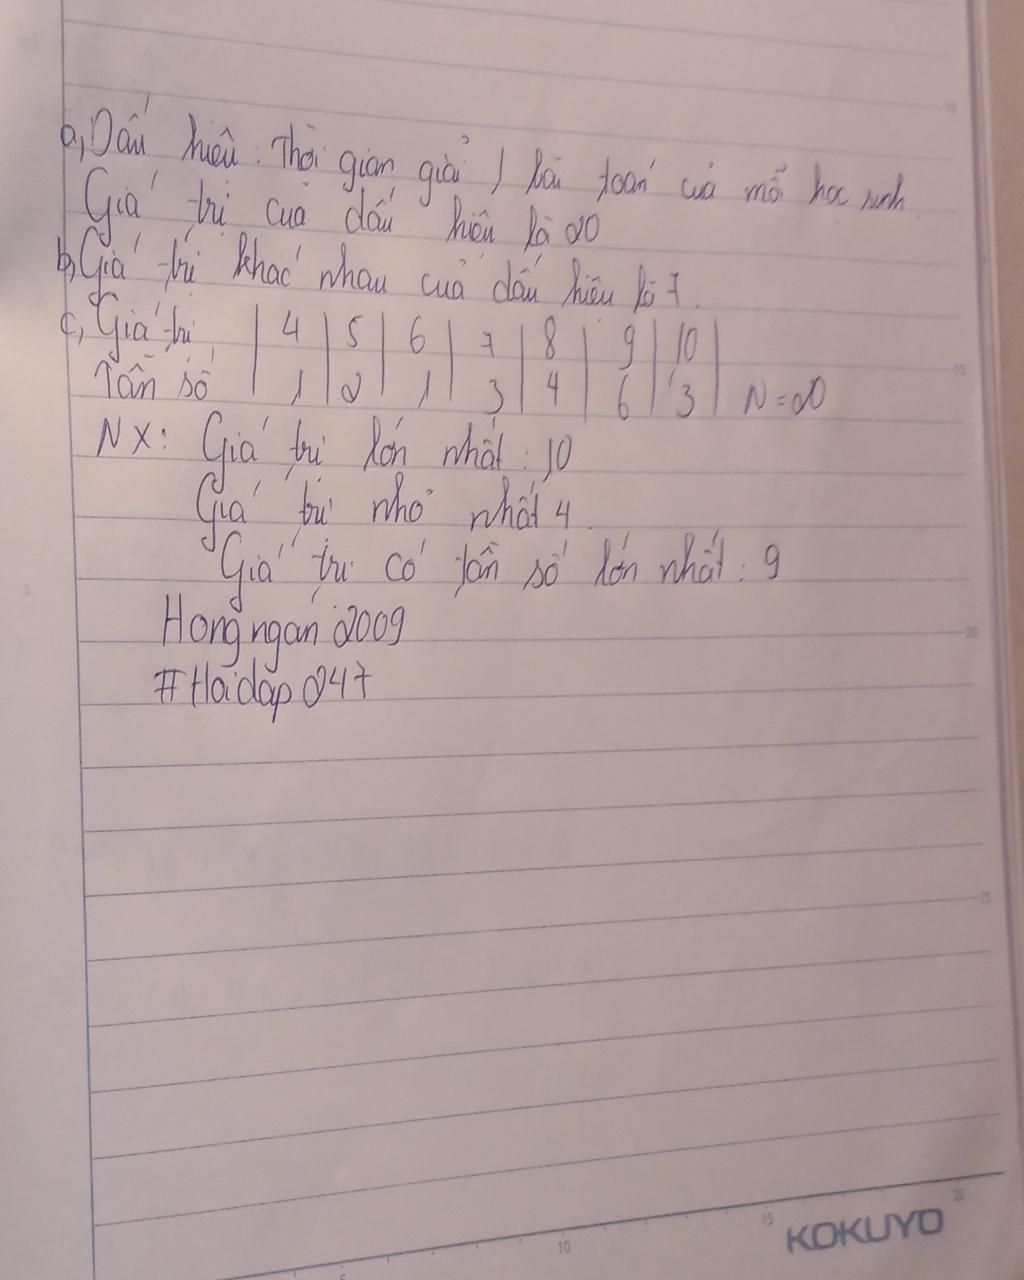 a, Dấu hiệu: Thời gian giải 1 bài toán của mỗi học sinh
Giá trị của dấu hiệu là 20
b, Giá trị khác nhau của dấu hiệu là 7.
c, Giá trị | 4 | 5 | 6 | 7 | 8 | 9 | 10 |
Tần số | 1 | 2 | 1 | 3 | 4 | 6 | 3 | N = 20
NX: Giá trị lớn nhất: 10
Giá trị nhỏ nhất 4.
Giá trị có tần số lớn nhất: 9
Hongngan 2009
#Hoidap247
10
15
20
25
5 10 15 20
KOKUYO